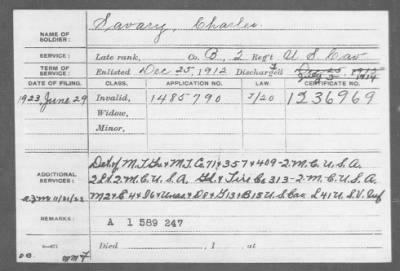 NAME OF SOLDIER: Savary, Charles.
SERVICE: Late rank, Co. B, 2 Reg't U.S. Cav
TERM OF SERVICE: Enlisted Dec 25, 1912 Discharged 1914
DATE OF FILING. CLASS. APPLICATION NO. LAW. CERTIFICATE NO.
1923 June 29 Invalid, 1485790 3/20 1236969
Widow,
Minor,
ADDITIONAL SERVICES:
Det of M.T. & M.T. Co 71 & 357 & 409 - 2. M.C. U.S.A.
2. M.C. U.S.A. & Tire Co 313-2-M.C-U.S.A.
M 2 & C 4 & 16 & Unas & D 8 & G 13 & B 15 U.S. Cav L 41 U.S.V. Inf
11/21/23
REMARKS:
A 1 589 247
Died , 1 , at